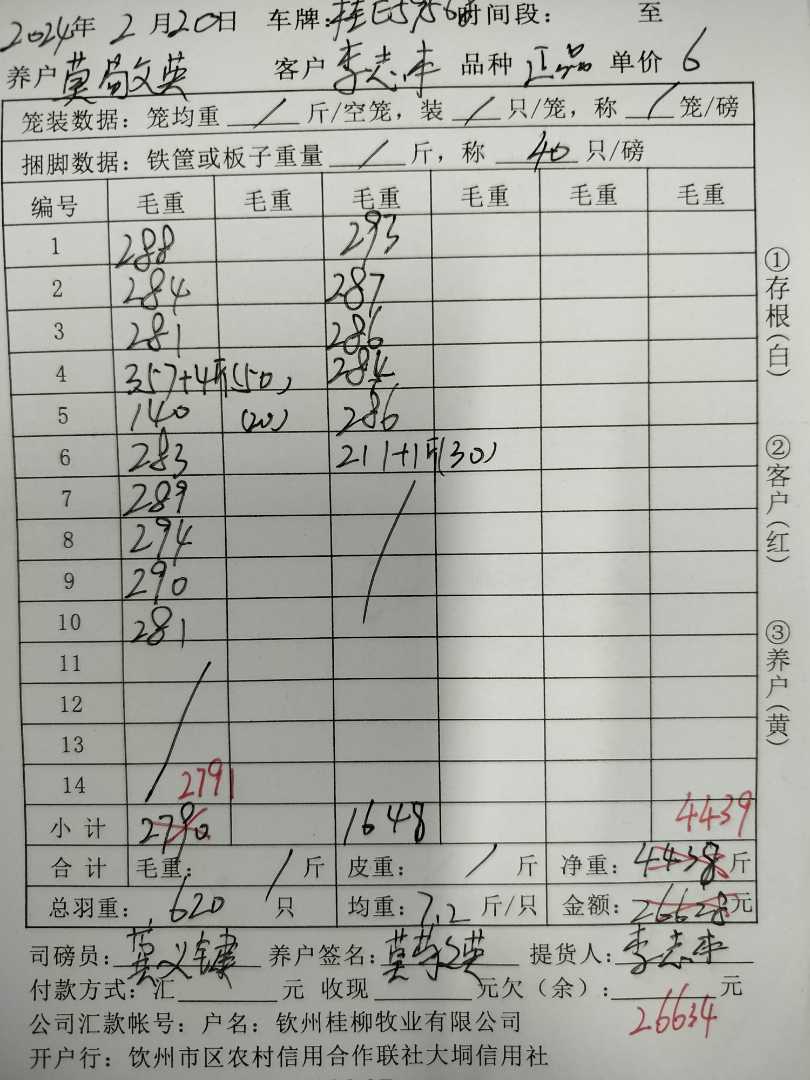 2024年 2 月 20 日 车牌: 时间段: 至
养户 莫 文英 客户 李志丰 品种 正品 单价 6
笼装数据: 笼均重 / 斤/空笼, 装 / 只/笼, 称 / 笼/磅
捆脚数据: 铁筐或板子重量 / 斤, 称 40 只/磅
编号 毛重 毛重 毛重 毛重 毛重 毛重
1 288 293
2 284 287
3 281 286
4 357+4斤(50) 284
5 140 (20) 286
6 283 211+1斤(30)
7 289
8 294
9 290
10 281
11
12
13
14 2791
小计 2790 1648 4439
合计 毛重: / 斤 皮重: / 斤 净重: 4438 斤
总羽重: 620 只 均重: 7.2 斤/只 金额: 26628 元
司磅员: 莫义 养户签名: 莫 英 提货人: 李志丰
付款方式: 汇 元 收现 元欠(余): 元
26634
公司汇款帐号: 户名: 钦州桂柳牧业有限公司
开户行: 钦州市区农村信用合作联社大垌信用社
①存根(白)
②客户(红)
③养户(黄)